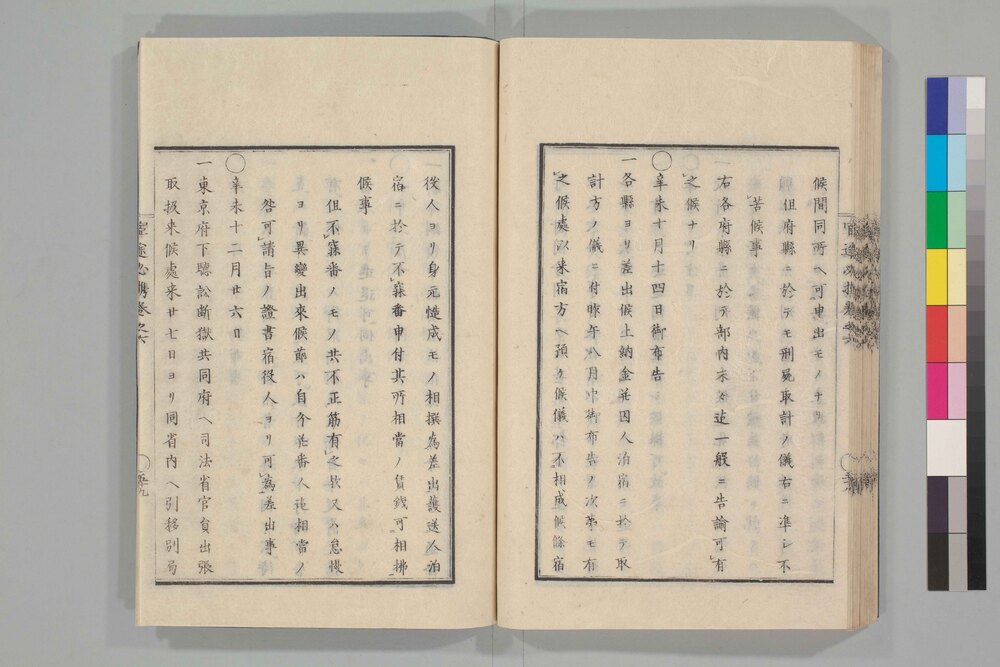 候間同所ヘ可申出モノナリ
但府縣ニ於テモ刑屍取計ノ儀右ニ準シ不
苦候事
右各府縣ニ於テ部内末々迠一般ニ告諭可有
之候ナリ
辛未十月十四日御布告
一各縣ヨリ差出候上納金并囚人泊宿ニ於テ取
計方ノ儀ニ付昨午八月中御布告ノ次第モ有
之候處以来宿方ヘ預ケ候儀ハ不相成候條宿
役人ヨリ身元慥成モノ相撰為差出護送人泊
宿ニ於テ不寐番申付其所相當ノ賃錢可相拂
候事
但不寐番ノモノ共不正筋有之歟又ハ怠慢
ヨリ異變出來候節ハ自今并番人迠相當ノ
咎可請旨ノ證書宿役人ヨリ可為差出事
辛未十二月廿六日
一東京府下聴訟断獄共同府ヘ司法省官員出張
取扱来候處来廿七日ヨリ同省内ヘ引移別局
官途必携巻之六
五十九